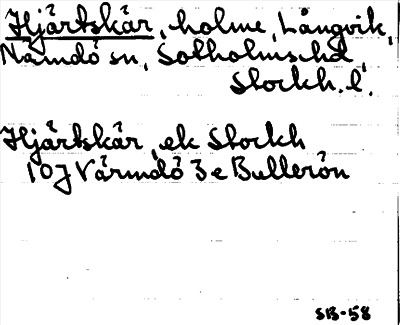 Hjärtskär, holme, Långvik,
Nämdö sn, Sotholms hd,
Stockh. l.
Hjärtskär, ek Stockh
10J Värmdö 3 e Bullerön
SB-58